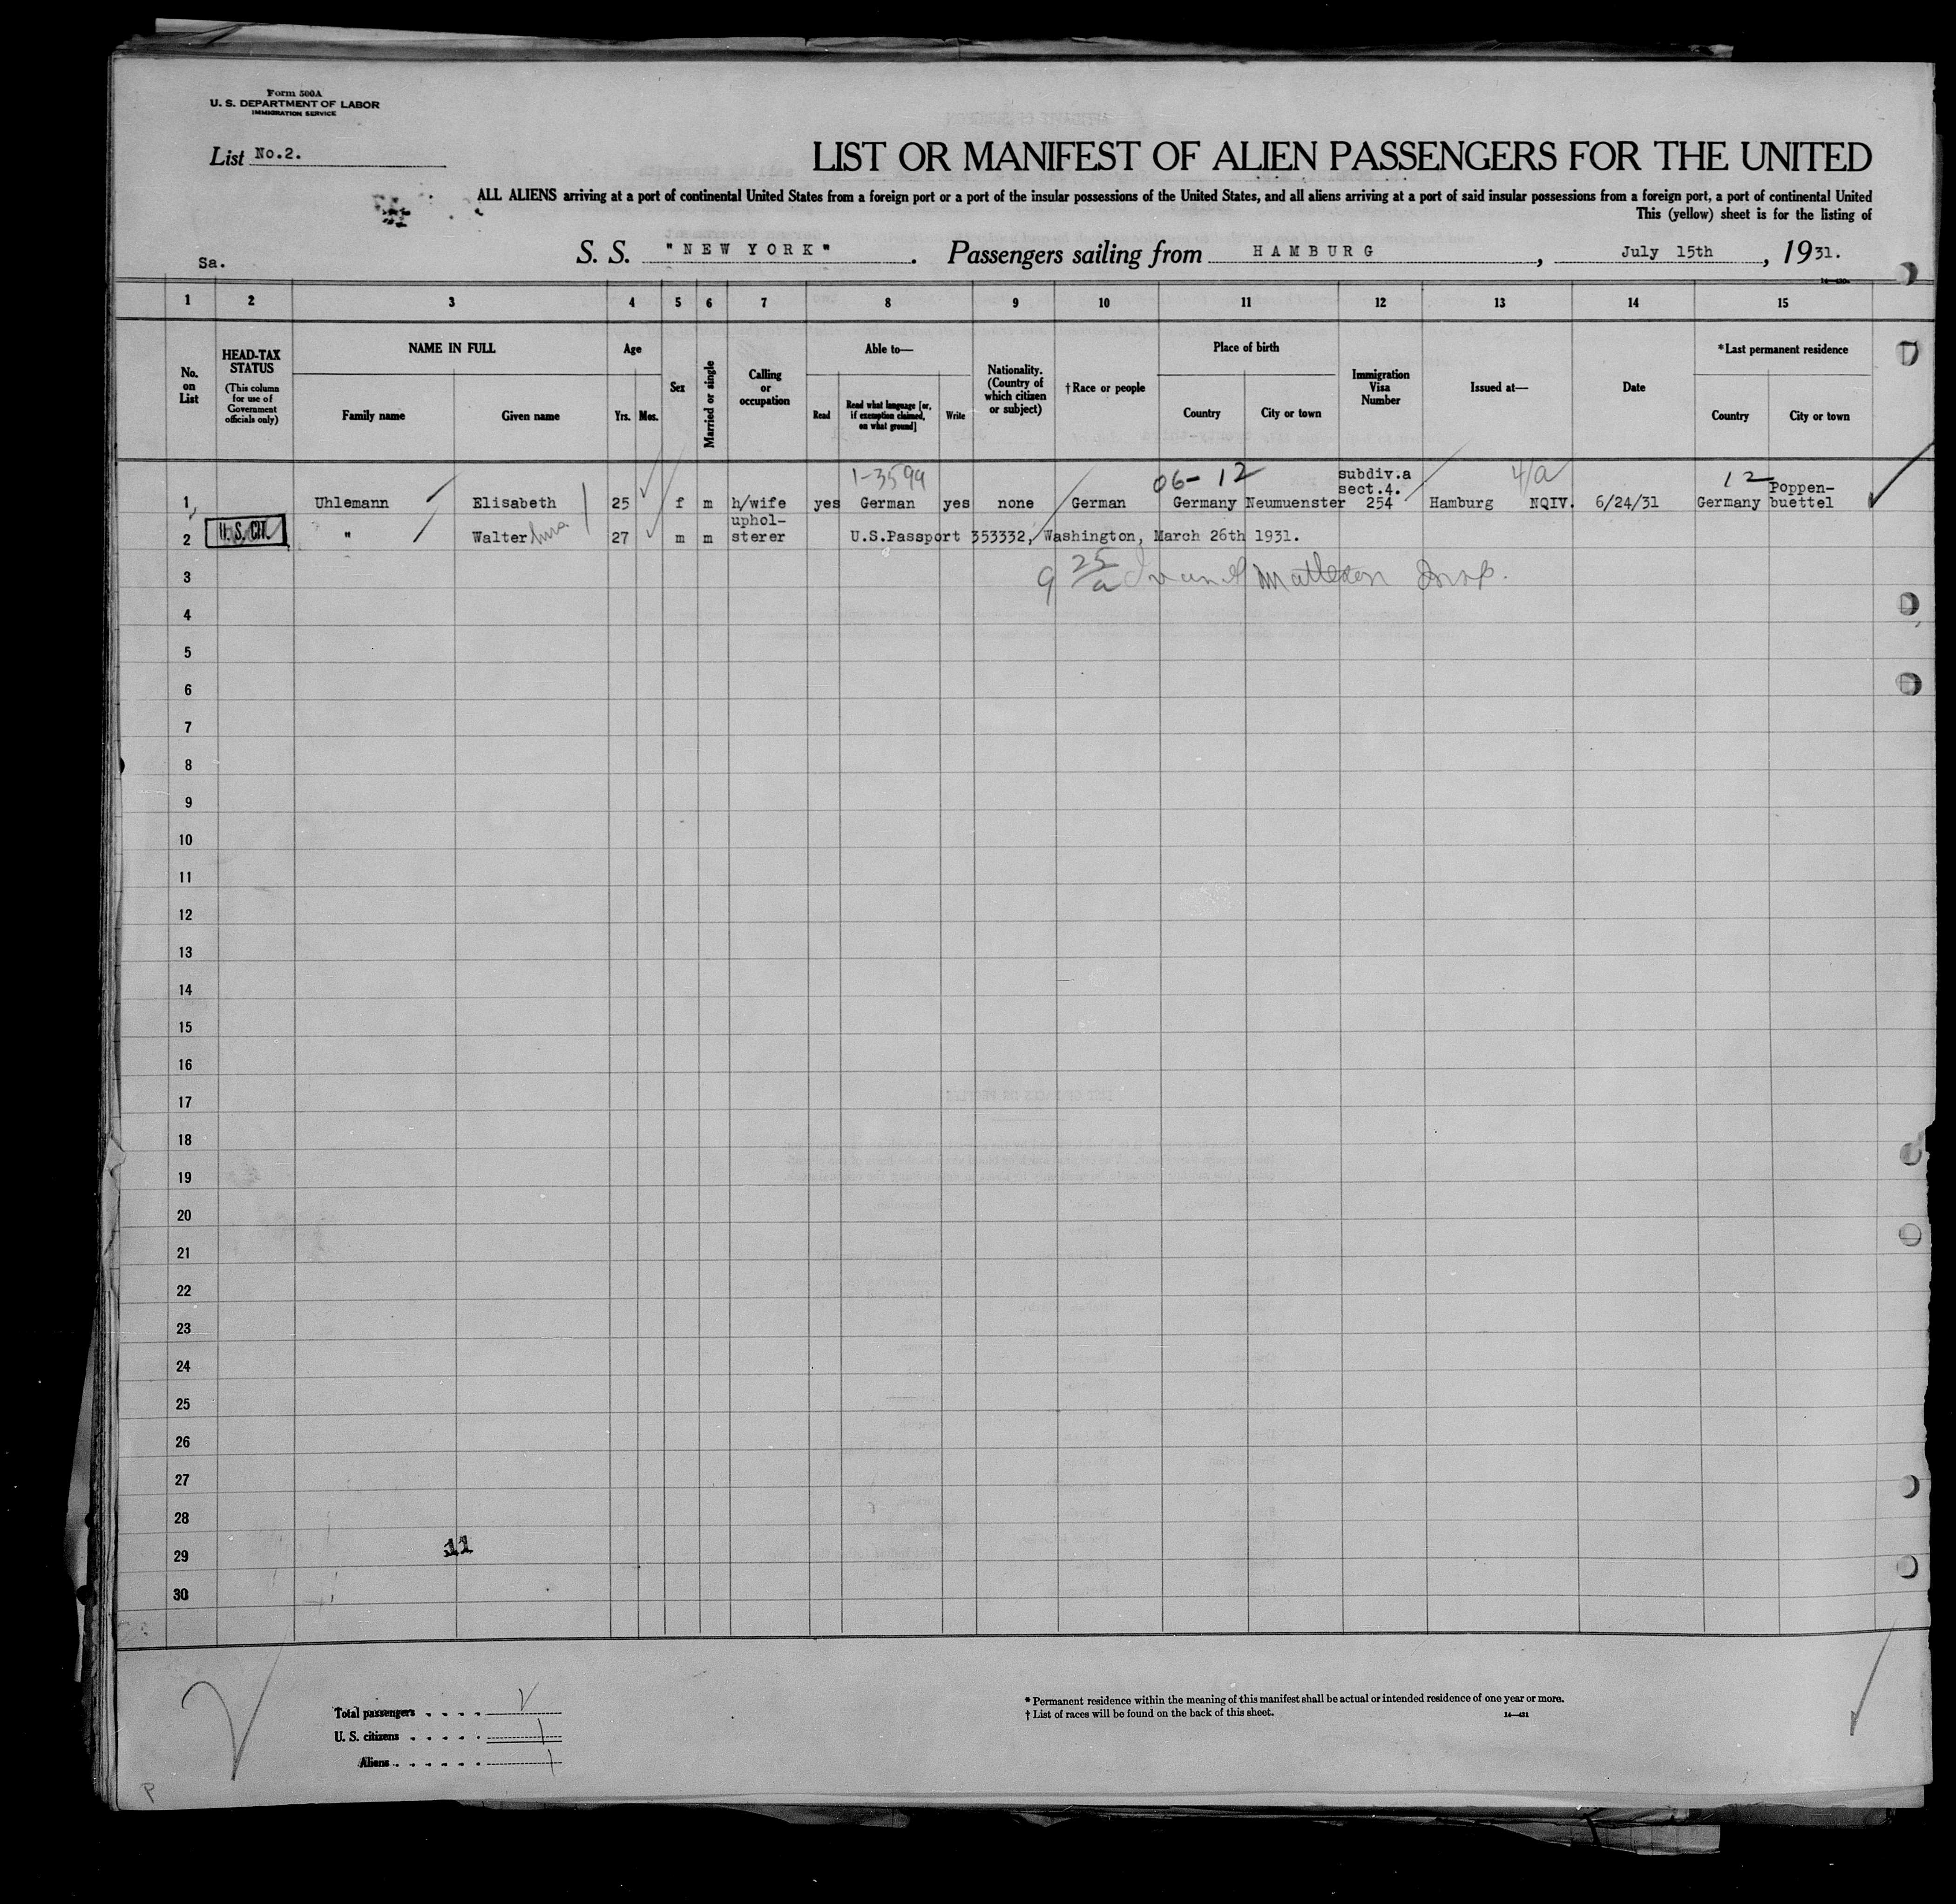 Form 500A
U. S. DEPARTMENT OF LABOR
IMMIGRATION SERVICE
List No.2.
LIST OR MANIFEST OF ALIEN PASSENGERS FOR THE UNITED
ALL ALIENS arriving at a port of continental United States from a foreign port or a port of the insular possessions of the United States, and all aliens arriving at a port of said insular possessions from a foreign port, a port of continental United
This (yellow) sheet is for the listing of
Sa. S. S. "NEW YORK". Passengers sailing from HAMBURG, July 15th, 1931.
1 2 3 4 5 6 7 8 9 10 11 12 13 14 15
No. on List
HEAD-TAX STATUS
(This column for use of Government officials only)
NAME IN FULL
Family name Given name
Age
Yrs. Mos.
Sex
Married or single
Calling or occupation
Able to—
Read
Read what language [or, if exemption claimed, on what ground]
Write
Nationality. (Country of which citizen or subject)
†Race or people
Place of birth
Country City or town
Immigration Visa Number
Issued at—
Date
*Last permanent residence
Country City or town
1-3599 06-12 subdiv.a sect.4. 4/a 12
1 Uhlemann Elisabeth 25 f m h/wife yes German yes none German Germany Neumuenster 254 Hamburg NQIV. 6/24/31 Germany Poppen-buettel
2 U. S. CIT. " Walter 27 m m uphol-sterer U.S.Passport 353332, Washington, March 26th 1931.
3 9 25/a Insp.
4
5
6
7
8
9
10
11
12
13
14
15
16
17
18
19
20
21
22
23
24
25
26
27
28
29 11
30
Total passengers
U. S. citizens 1
Aliens 1
* Permanent residence within the meaning of this manifest shall be actual or intended residence of one year or more.
† List of races will be found on the back of this sheet.
14—431
P